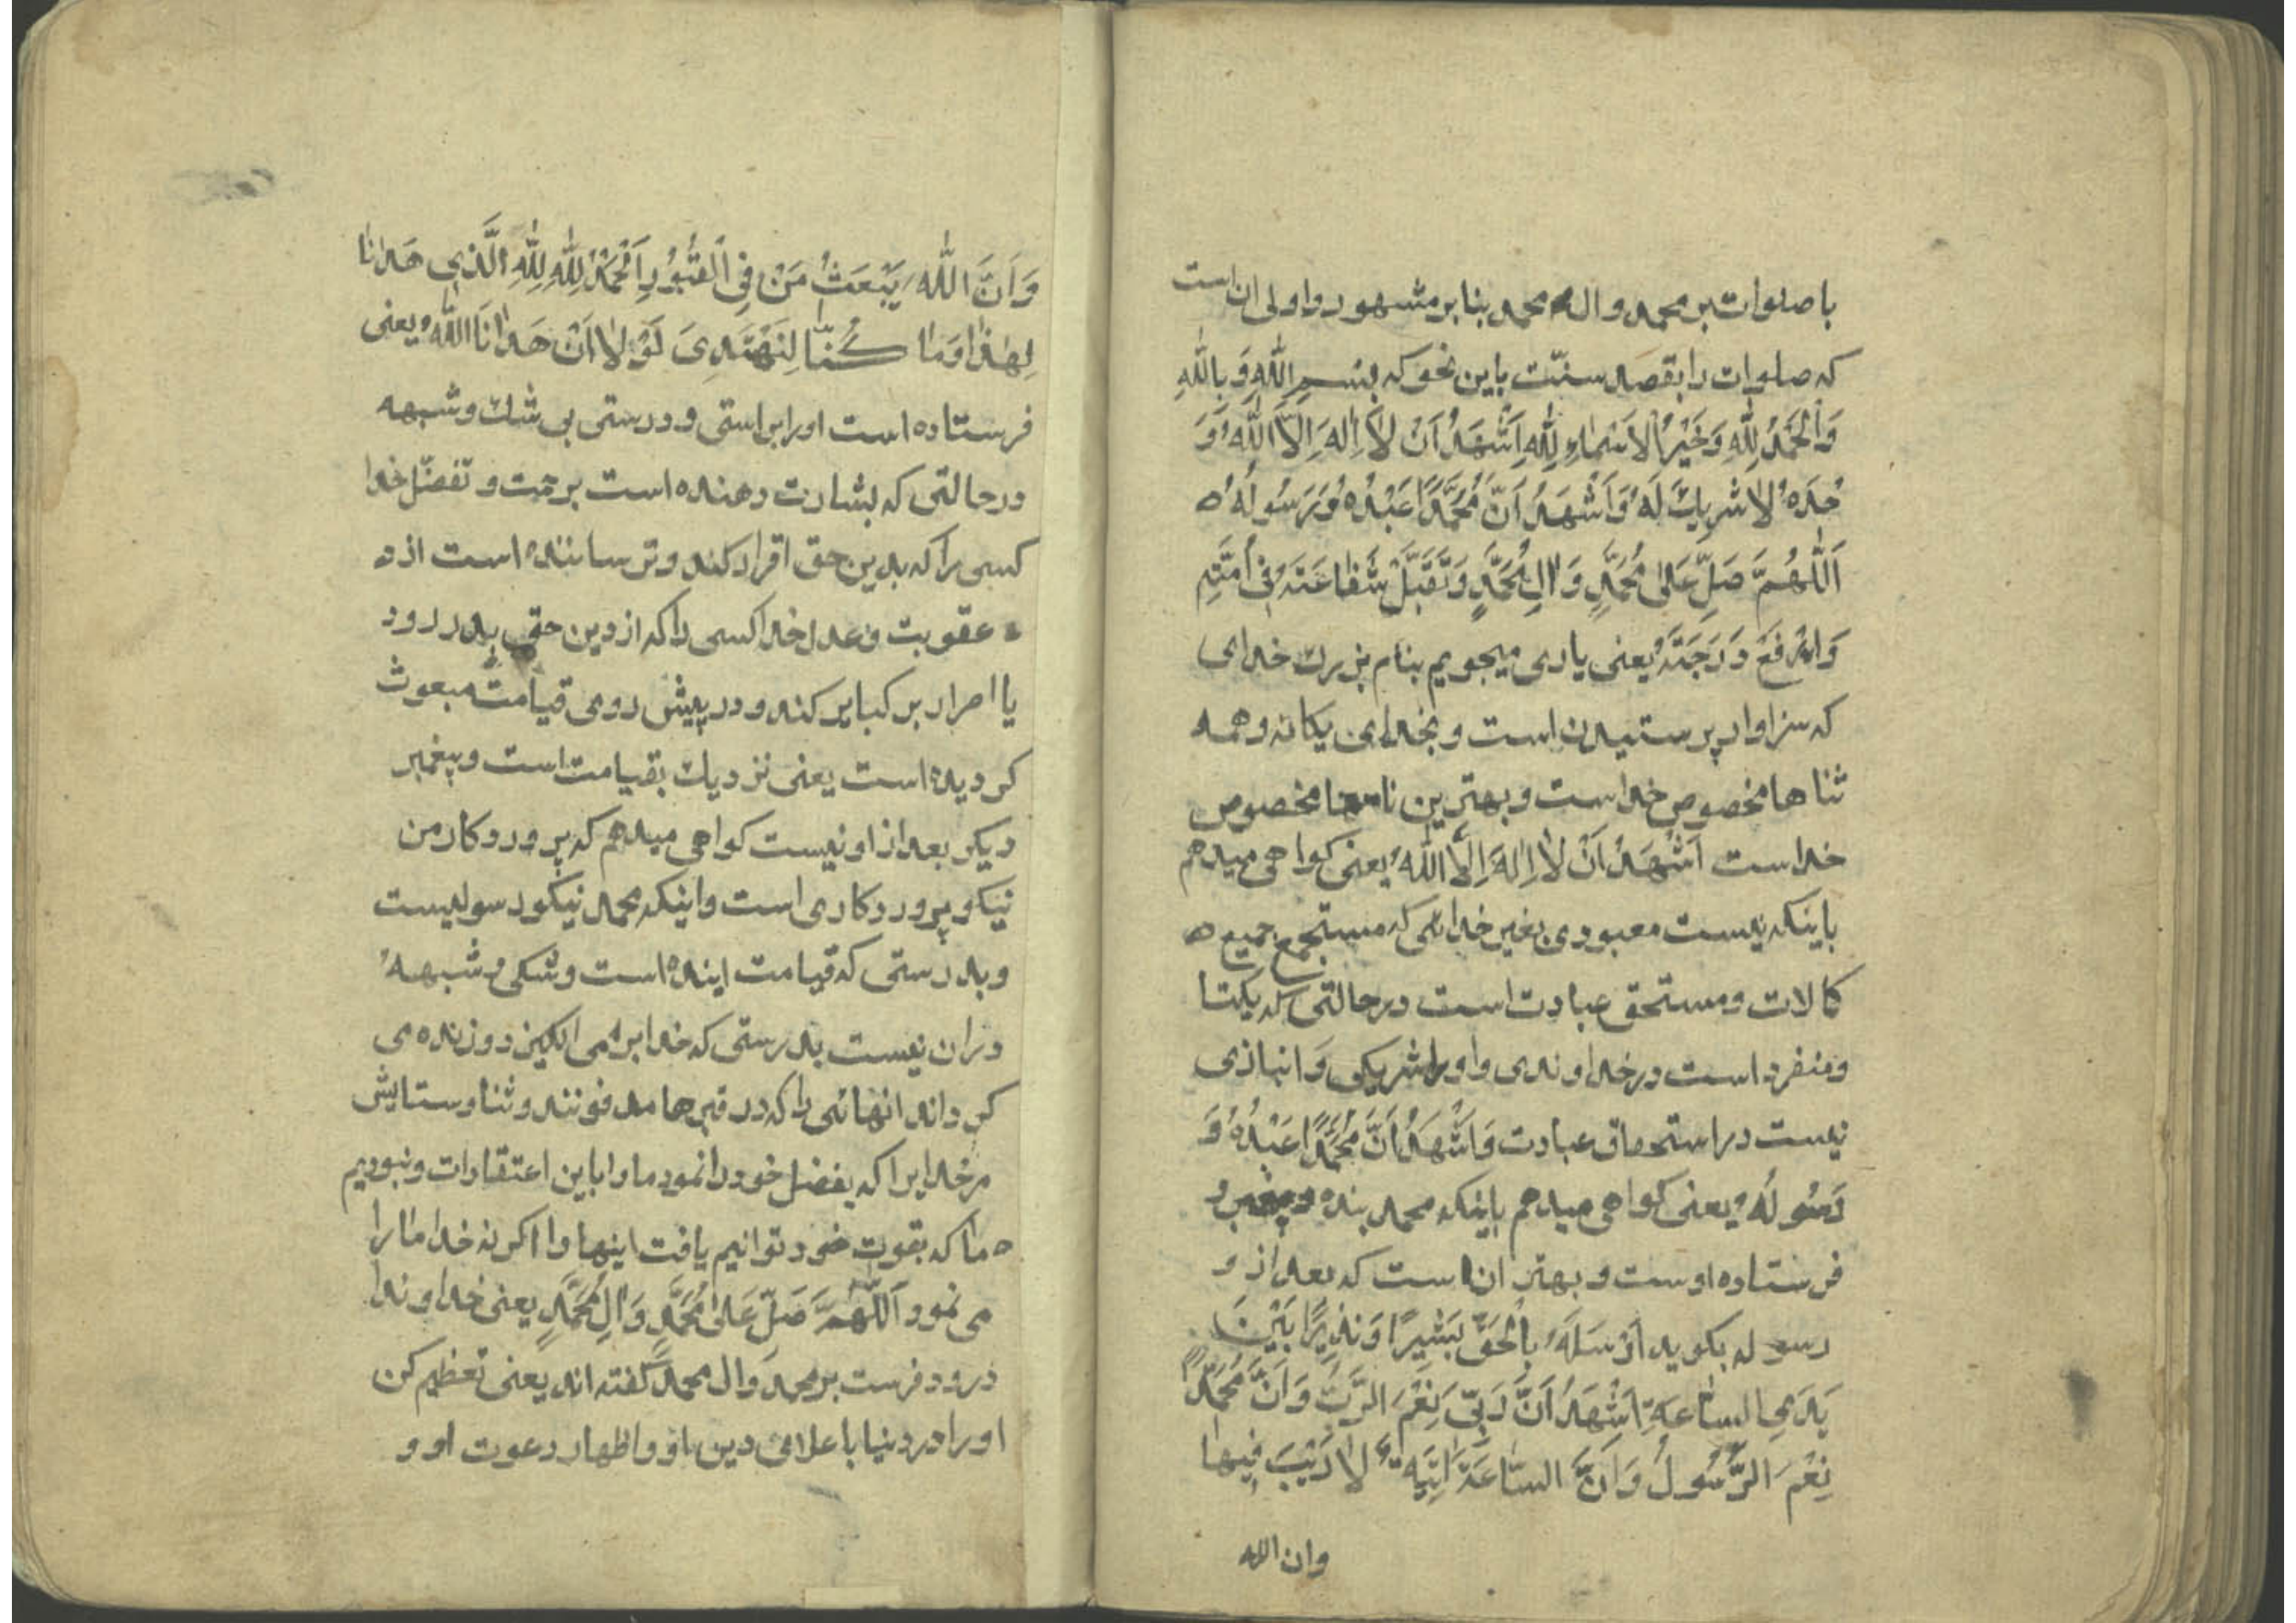 با صلوات بر محمد و ال محمد بنا بر مشهور و اولی ان است
که صلوات را بقصد سنّت باین نحو که بِسْمِ اللّٰهِ وَبِاللّٰهِ
وَالْحَمْدُ لِلّٰهِ وَخَيْرُ الْاَسْمَاءِ لِلّٰهِ اَشْهَدُ اَنْ لَا اِلٰهَ اِلَّا اللّٰهُ وَ
حْدَهُ لَا شَرِيكَ لَهُ وَاَشْهَدُ اَنَّ مُحَمَّدًا عَبْدُهُ وَرَسُولُهُ
اَللّٰهُمَّ صَلِّ عَلٰى مُحَمَّدٍ وَاٰلِ مُحَمَّدٍ وَتَقَبَّلْ شَفَاعَتَهُ فِي اُمَّتِهِ
وَارْفَعْ دَرَجَتَهُ یعنی یاری میجویم بنام بزرك خدای
که سزاوار پرستیدن است و بخدای یکانه و همه
ثناها مخصوص خداست و بهترین نامها مخصوص
خداست اَشْهَدُ اَنْ لَا اِلٰهَ اِلَّا اللّٰهُ یعنی کواهی میدهم
باینکه نیست معبودی بغیر خدائی که مستجمع جمیع
کمالات و مستحق عبادت است در حالتی که یکتا
و منفرد است در خداوندی و او را شریکی وَ انبازی
نیست در استحقاق عبادت وَاَشْهَدُ اَنَّ مُحَمَّدًا عَبْدُهُ وَ
رَسُولُهُ یعنی کواهی میدهم باینکه محمد بنده و پیغمبر و
فرستاده اوست و بهتر ان است که بعد از و
رسوله بکوید اَرْسَلَهُ بِالْحَقِّ بَشِيرًا وَنَذِيرًا بَيْنَ
يَدَيِ السَّاعَةِ اَشْهَدُ اَنَّ رَبِّي نِعْمَ الرَّبُّ وَاَنَّ مُحَمَّدًا
نِعْمَ الرَّسُولُ وَاَنَّ السَّاعَةَ اٰتِيَةٌ لَا رَيْبَ فِيهَا
وان الله
وَاَنَّ اللّٰهَ يَبْعَثُ مَنْ فِي الْقُبُورِ اَلْحَمْدُ لِلّٰهِ لِلّٰهِ الَّذِي هَدَانَا
لِهٰذَا وَمَا كُنَّا لِنَهْتَدِيَ لَوْلَا اَنْ هَدَانَا اللّٰهُ یعنی
فرستاده است او را براستی و درستی بی شك و شبهه
در حالتی که بشارت دهنده است برحمت و تفضّل خدا
کسی را که بدین حق اقرار کند و ترساننده است از
عقوبت و عدل خدا کسی را که از دین حق بدر رود
یا اصرار بر کبایر کند و در پیش روی قیامت مبعوث
کردیده است یعنی نزدیك بقیامت است و پیغمبر
دیکر بعد از او نیست کواهی میدهم که پروردکار من
نیکو پروردکاری است و اینکه محمد نیکو رسولیست
و بدرستی که قیامت اینده است و شکی و شبههٔ
دران نیست بدرستی که خدا برمی انکیزد و زنده می
کرداند انهائی را که در قبرها مدفونند و ثنا و ستایش
مر خدایرا که بفضل خود را نمود ما را باین اعتقادات و نبودیم
ما که بقوت خود توانیم یافت اینها را اکر نه خدا ما را
می نمود اَللّٰهُمَّ صَلِّ عَلٰى مُحَمَّدٍ وَاٰلِ مُحَمَّدٍ یعنی خداوندا
درود فرست بر محمد وَ ال محمد کفته اند یعنی تعظیم کن
او را در دنیا باعلای دین او و اظهار دعوت او و